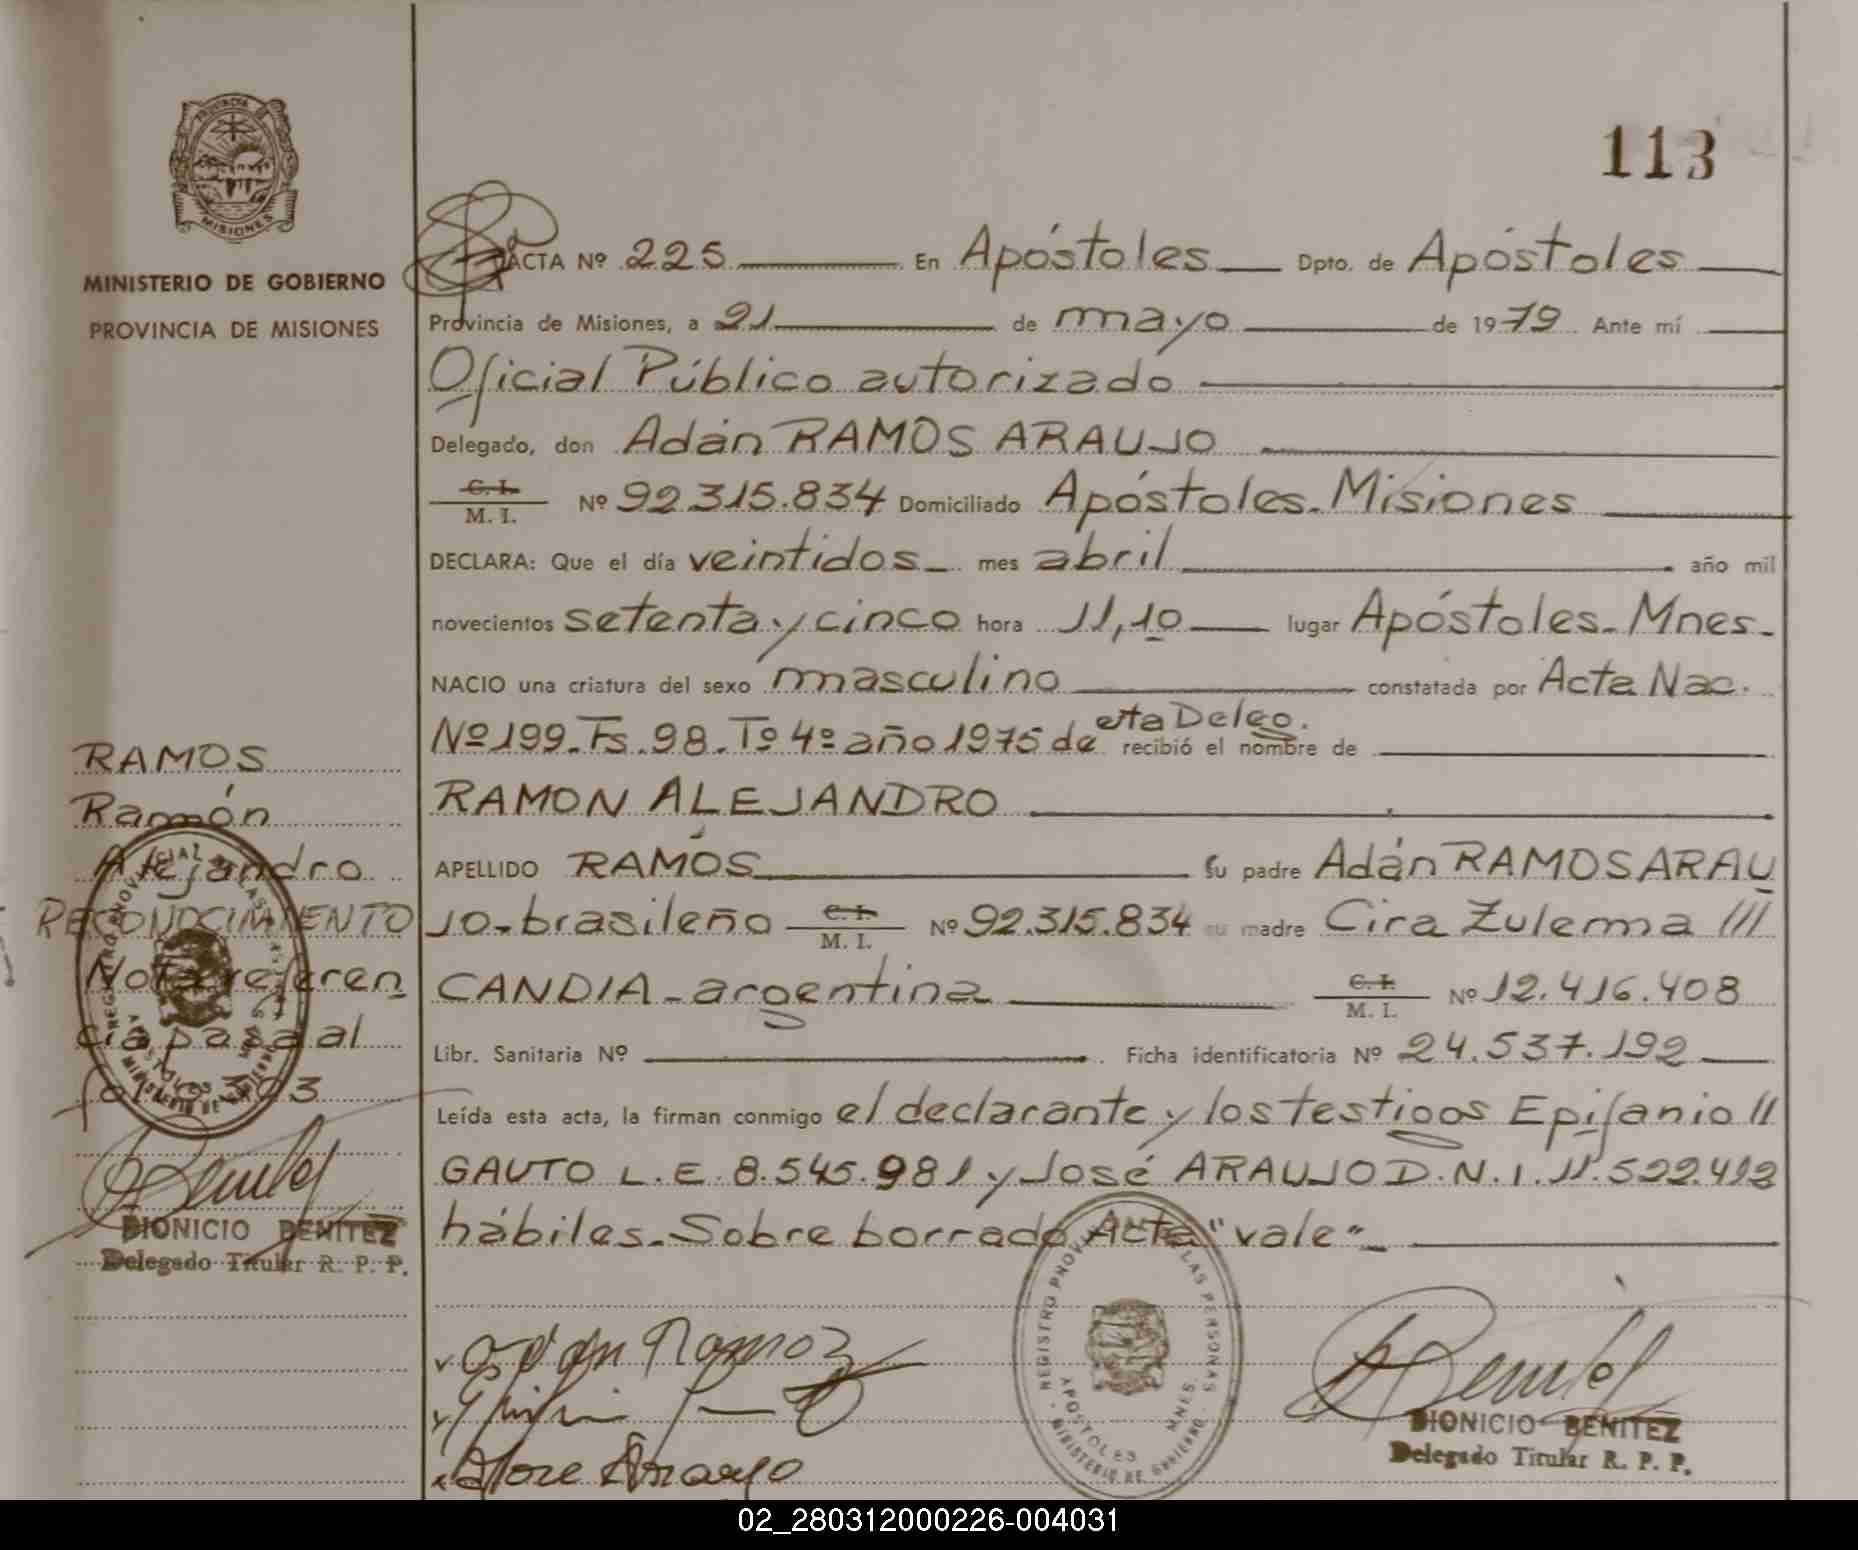 PROVINCIA
MISIONES
MINISTERIO DE GOBIERNO
PROVINCIA DE MISIONES
RAMOS
Ramón
Alejandro
RECONOCIMIENTO
Nota referen
cia pasa al
folio 393
DIONICIO BENITEZ
Delegado Titular R. P. P.
113
ACTA Nº 225 En Apóstoles Dpto. de Apóstoles
Provincia de Misiones, a 21 de mayo de 1979 Ante mí
Oficial Público autorizado
Delegado, don Adán RAMOS ARAUJO
C. I.
M. I. Nº 92.315.834 Domiciliado Apóstoles-Misiones
DECLARA: Que el día veintidos mes abril año mil
novecientos setenta y cinco hora 11,10 lugar Apóstoles-Mnes-
NACIO una criatura del sexo masculino constatada por Acta Nac.
Nº 199-Fs. 98-Tº 4º año 1975 de esta Deleg. recibió el nombre de
RAMON ALEJANDRO
APELLIDO RAMOS su padre Adán RAMOS ARAU
JO-brasileño C. I. M. I. Nº 92.315.834 su madre Cira Zulema ///
CANDIA-argentina C. I. M. I. Nº 12.416.408
Libr. Sanitaria Nº Ficha identificatoria Nº 24.537.192
Leída esta acta, la firman conmigo el declarante y los testigos Epifanio //
GAUTO L.E. 8.545.981 y José ARAUJO D.N.I. 11.522.412
hábiles-Sobre borrado Acta "vale"-
Adan Ramoz
Jose Araujo
REGISTRO PROVINCIAL DE LAS PERSONAS
APOSTOLES MNES.
MINISTERIO DE GOBIERNO
DIONICIO BENITEZ
Delegado Titular R. P. P.
02_280312000226-004031